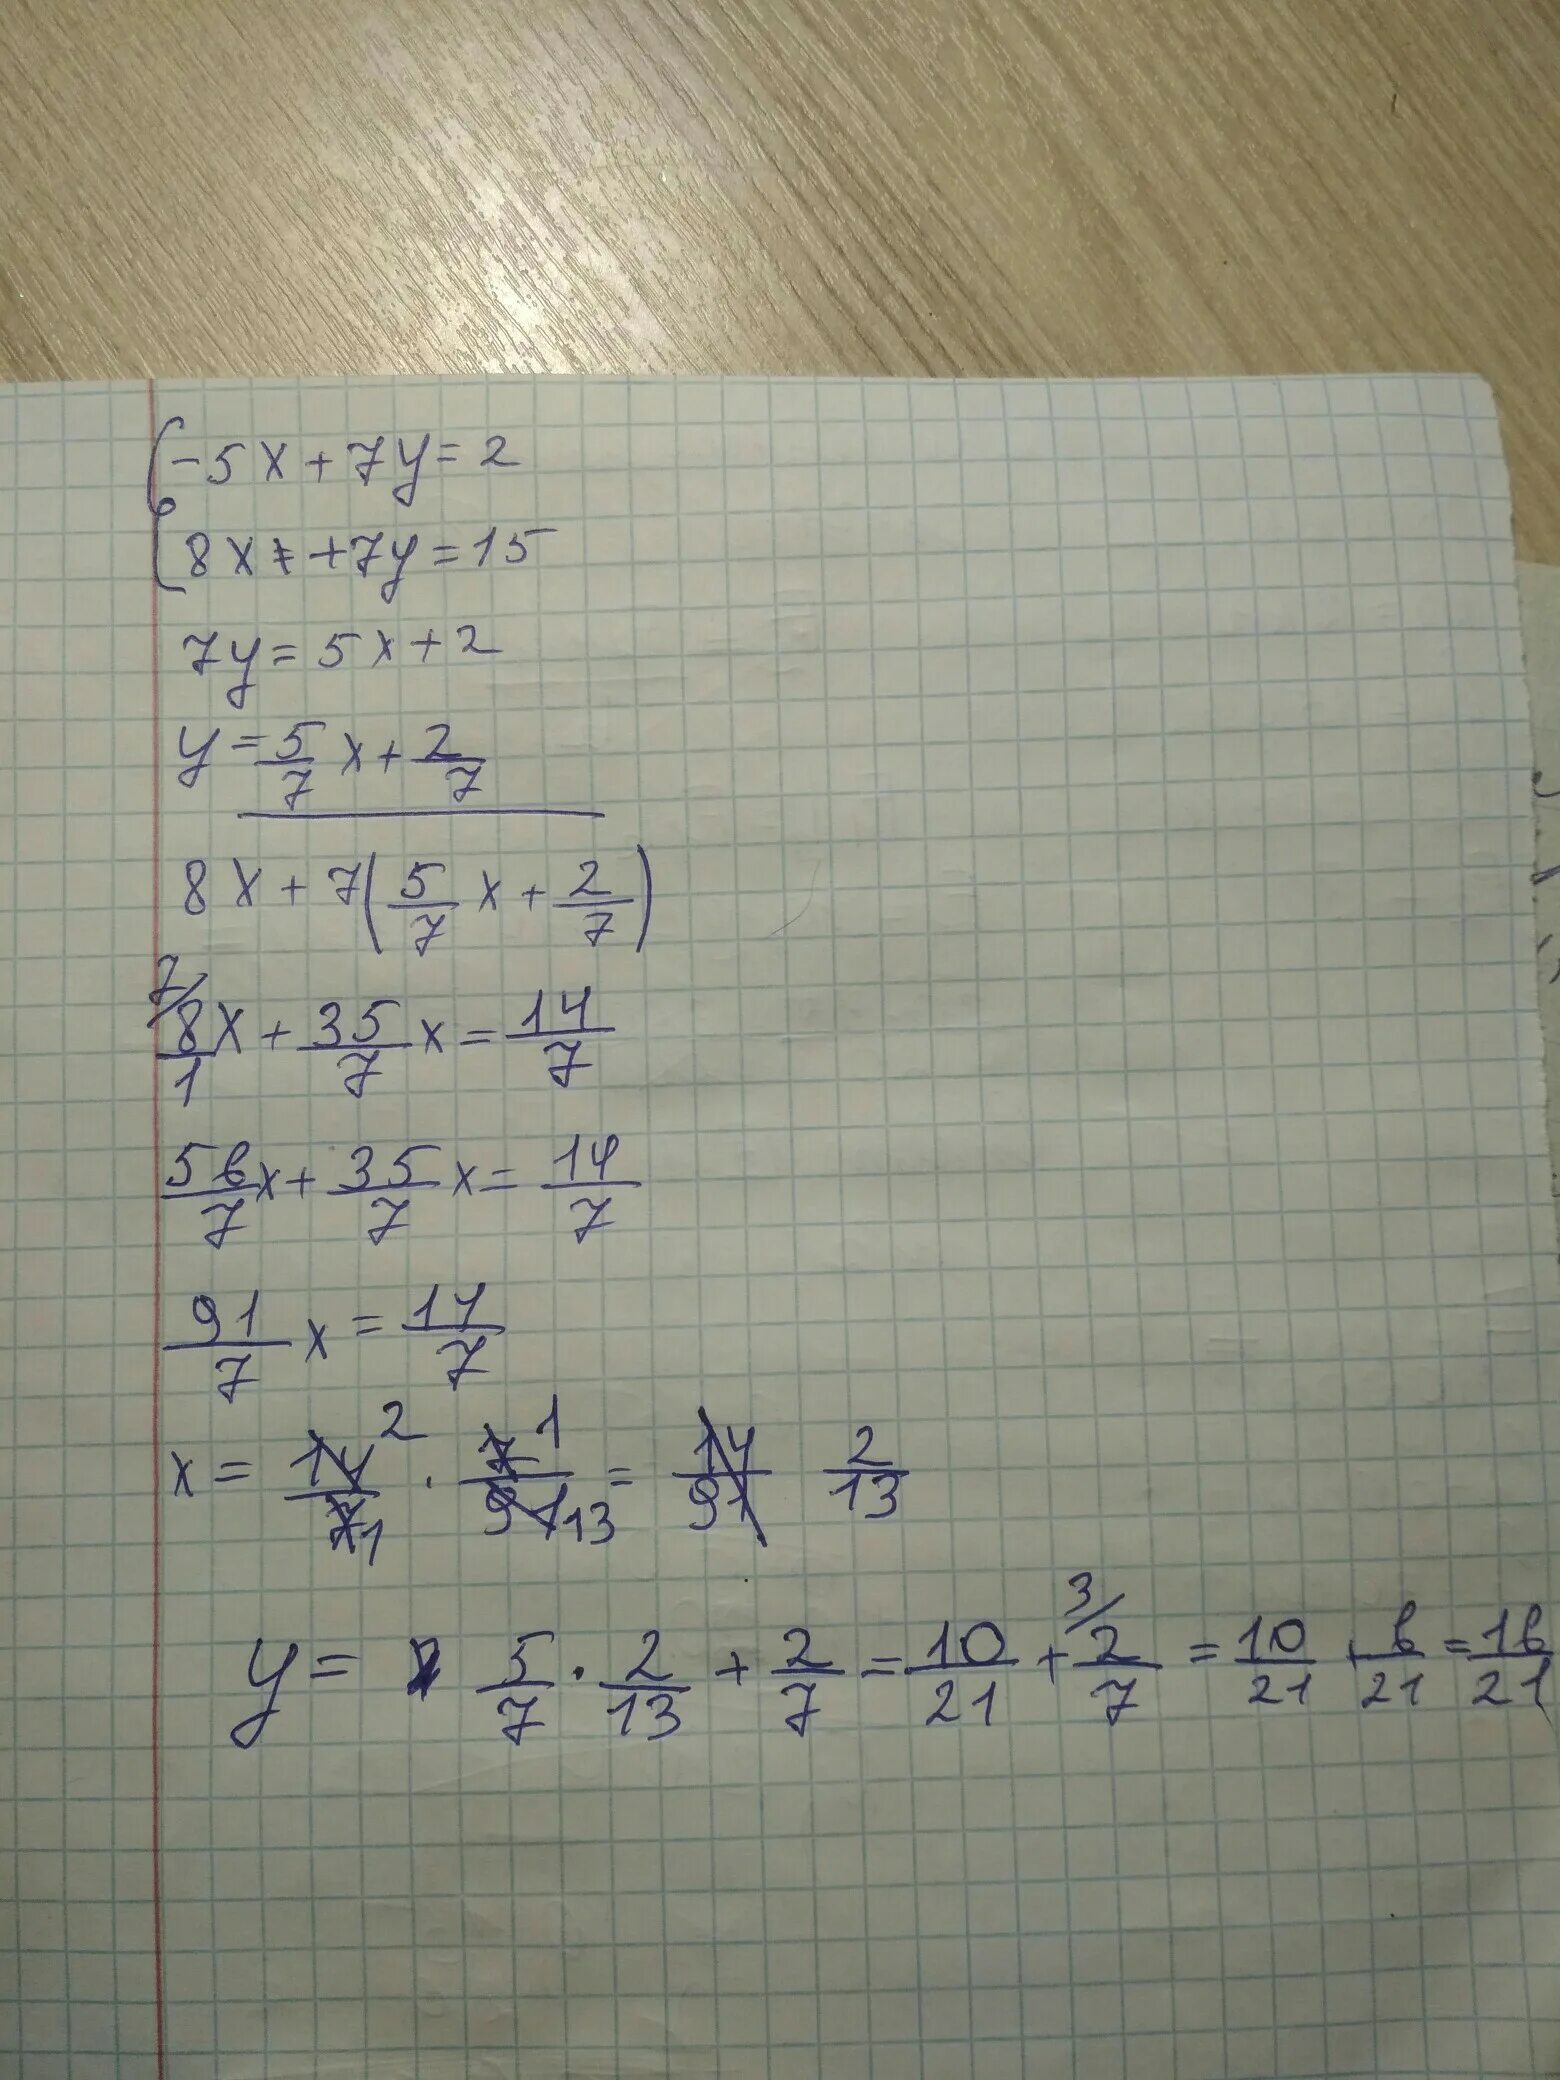 -5x + 7y = 2
8x + 7y = 15
7y = 5x + 2
y = 5/7 x + 2/7
8x + 7(5/7 x + 2/7)
7/ 8/1 x + 35/7 x = 14/7
56/7 x + 35/7 x = 14/7
91/7 x = 14/7
x = 14 2/7 1 · 7 1/91 13 = 14/91 2/13
y = 5/7 · 2/13 + 2/7 = 10/21 + 3/ 2/7 = 10/21 + 6/21 = 16/21